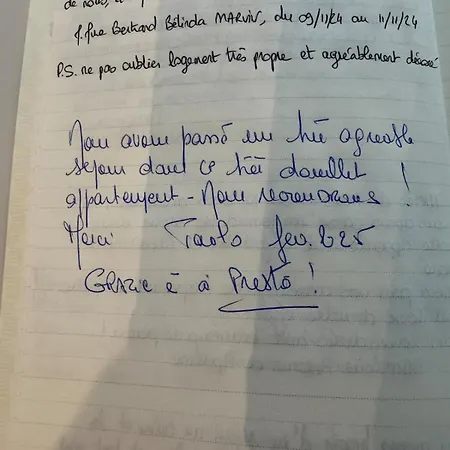 de nous,
f. rue Bertrand Bélinda MARVIN, du 09/11/24 au 11/11/24
P.S. ne pas oublier logement très propre et agréablement décoré
Nous avons passé un très agréable
séjour dans ce très douillet
appartement - Nous reviendrons !
Merci Paolo fev. 2025
GRAZIE è a PRESTO !